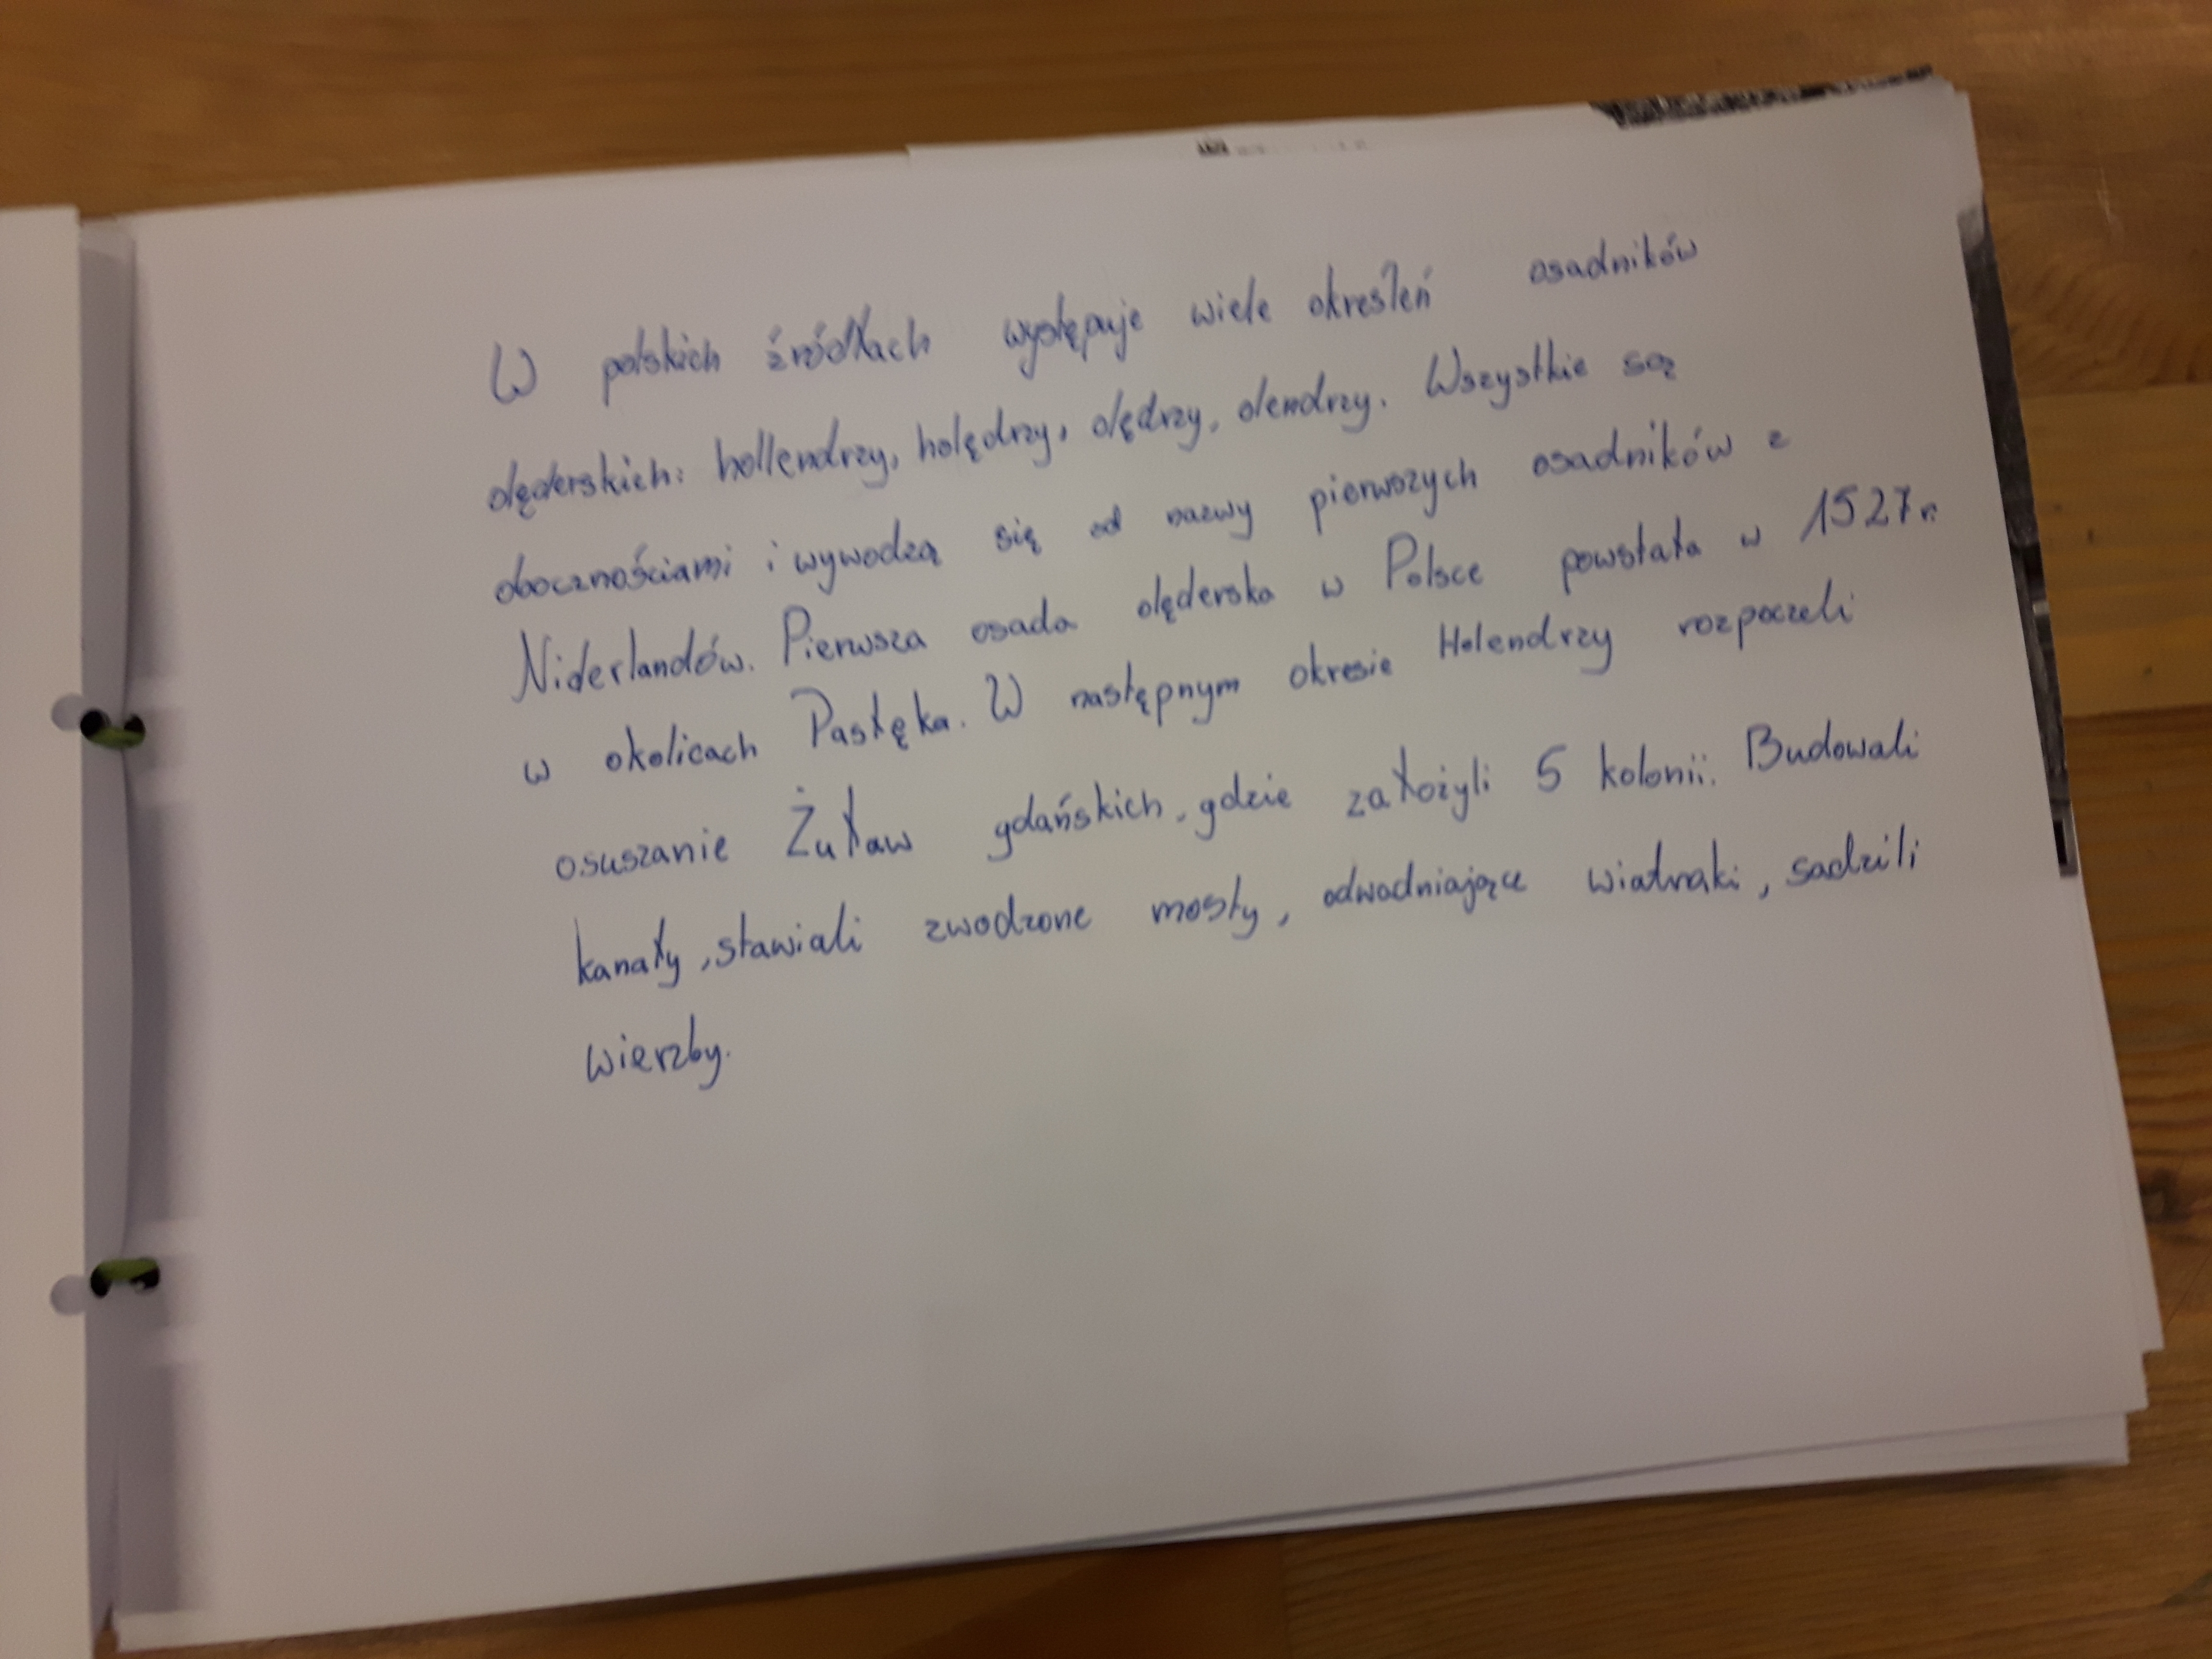 W polskich źródłach występuje wiele określeń osadników
olęderskich: hollendrzy, holędrzy, olędrzy, olendrzy. Wszystkie są
obocznościami i wywodzą się od nazwy pierwszych osadników z
Niderlandów. Pierwsza osada olęderska w Polsce powstała w 1527r.
w okolicach Pasłęka. W następnym okresie Holendrzy rozpoczeli
osuszanie Żuław gdańskich, gdzie założyli 5 kolonii. Budowali
kanały, stawiali zwodzone mosty, odwadniające wiatraki, sadzili
wierzby.